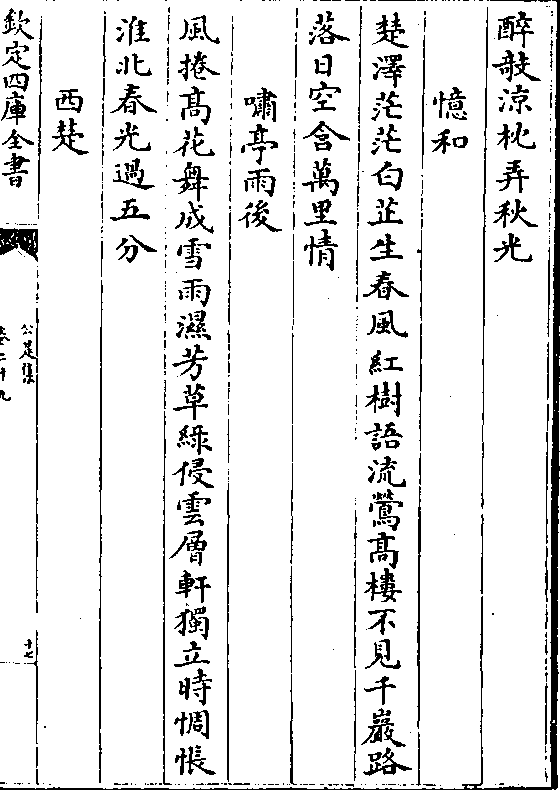 醉敧涼枕弄秋光
憶和
楚澤茫茫白芷生春風紅樹語流鶯髙樓不見千巖路
落日空含萬里情
嘯亭雨後
風捲髙花舞成雪雨濕芳草綠侵雲層軒獨立時惆悵
淮北春光過五分
西楚
欽定四庫全書
公是集
卷二十九
十七